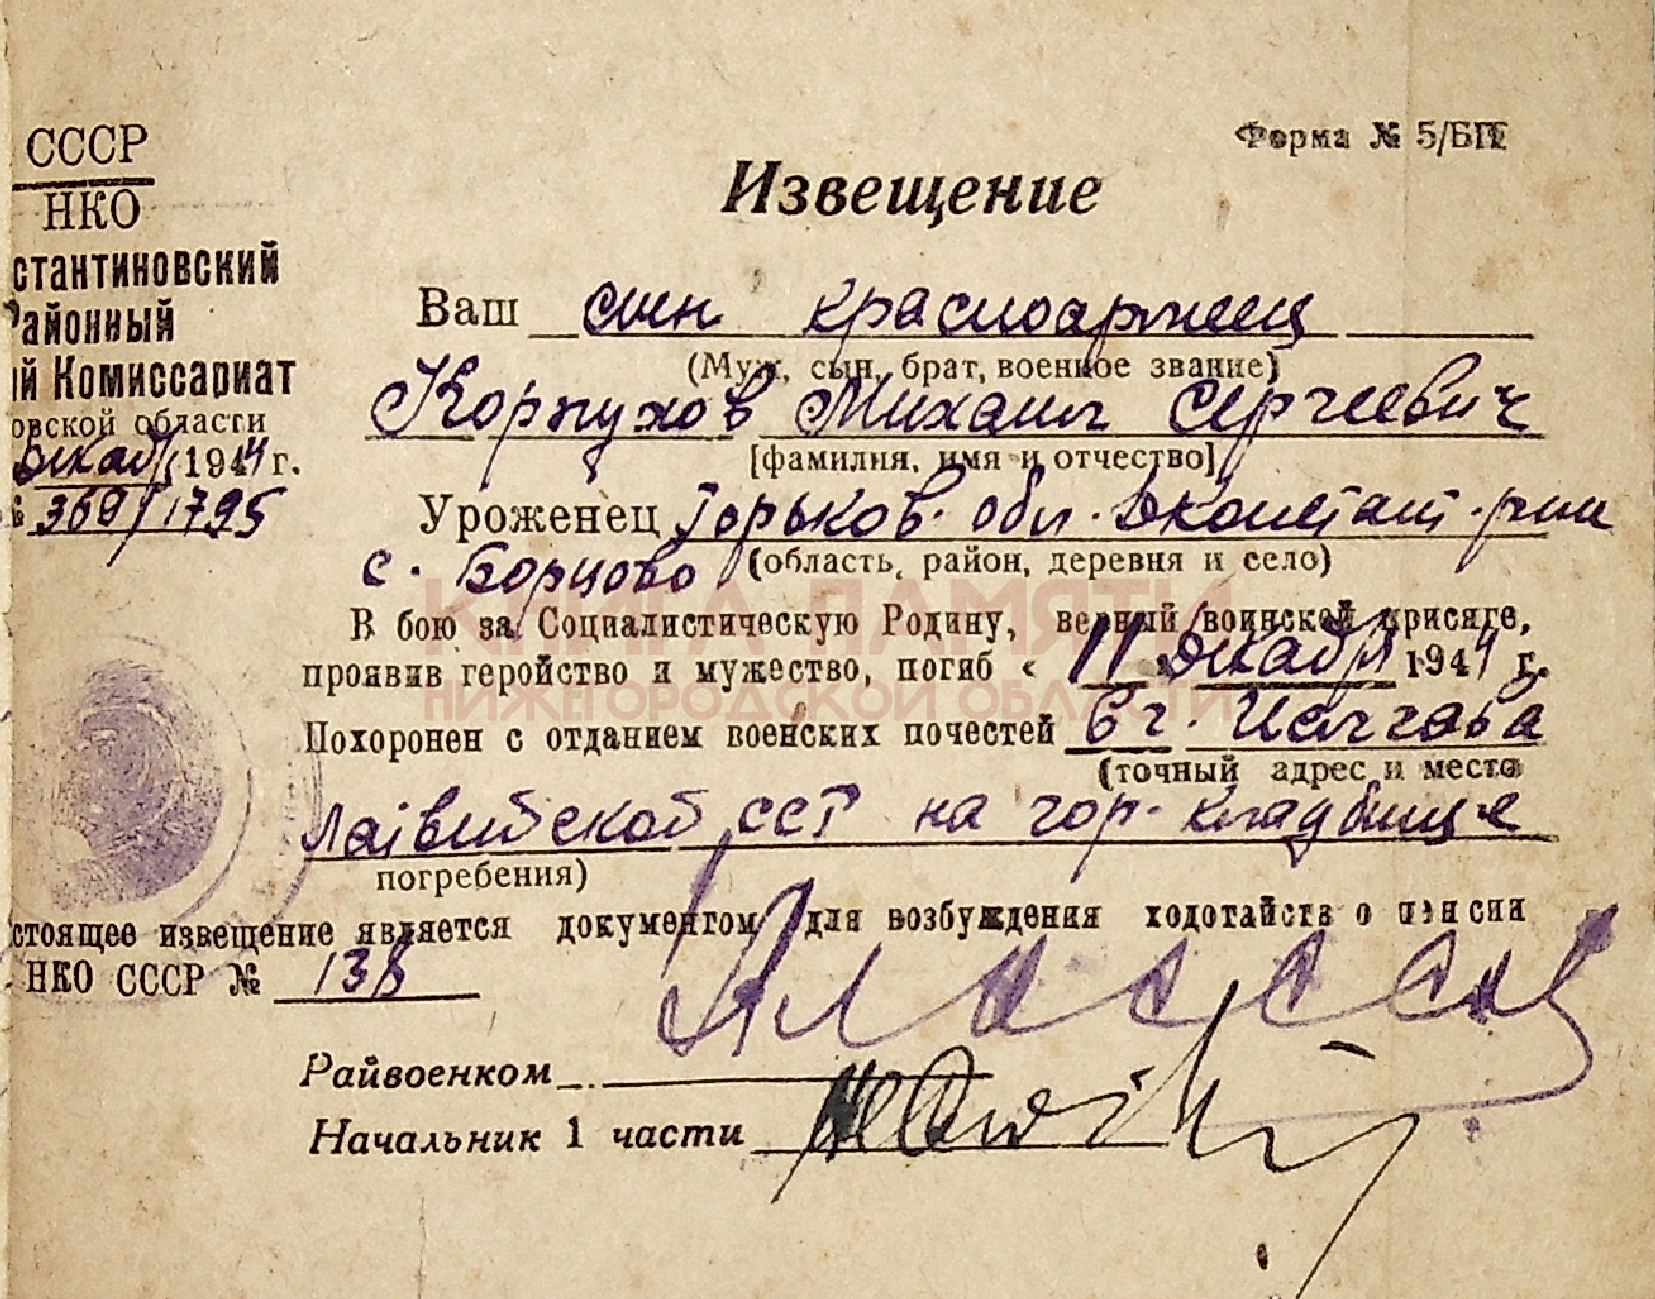 СССР
НКО
стантиновский
Районный
ый Комиссариат
овской области
декаб 1944 г.
№ 369/1795
Форма № 5/БП
Извещение
Ваш сын красноармеец
(Муж, сын, брат, военное звание)
Корпухов Михаил Сергеевич
[фамилия, имя и отчество]
Уроженец Горьков. обл. Дконстант. р-на
с. Борцово (область, район, деревня и село)
В бою за Социалистическую Родину, верный воинской присяге,
проявив геройство и мужество, погиб « 11 » декабря 1944 г.
Похоронен с отданием военских почестей в г.
(точный адрес и место
Латвийской ССР на гор. кладбище
погребения)
стоящее извещение является документом для возбуждения ходотайств о пенсии
НКО СССР № 138
Райвоенком
Начальник 1 части
КНИГА ПАМЯТИ
НИЖЕГОРОДСКОЙ ОБЛАСТИ